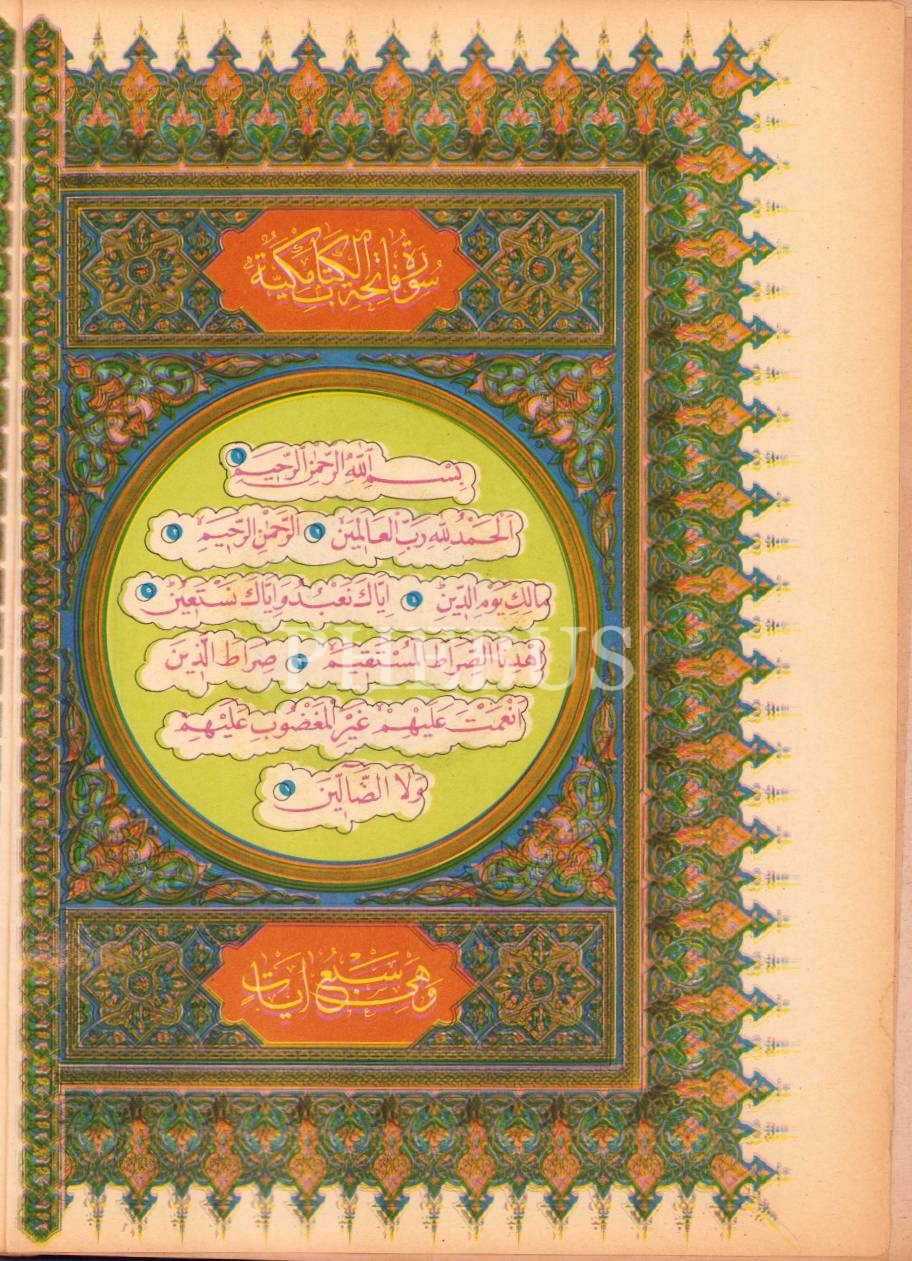 سُورَةُ فَاتِحَةِ الكِتَابِ مَكِيَّةٌ
بِسْمِ اللّٰهِ الرَّحْمٰنِ الرَّحِيمِ ١
اَلْحَمْدُ لِلّٰهِ رَبِّ الْعَالَمِينَ ٢ اَلرَّحْمٰنِ الرَّحِيمِ ٣
مَالِكِ يَوْمِ الدِّينِ ٤ اِيَّاكَ نَعْبُدُ وَاِيَّاكَ نَسْتَعِينُ ٥
اِهْدِنَا الصِّرَاطَ الْمُسْتَقِيمَ ٦ صِرَاطَ الَّذِينَ
اَنْعَمْتَ عَلَيْهِمْ غَيْرِ الْمَغْضُوبِ عَلَيْهِمْ
وَلَا الضَّالِّينَ ٧
وَهِيَ سَبْعُ اٰيَاتٍ
PHEBUS